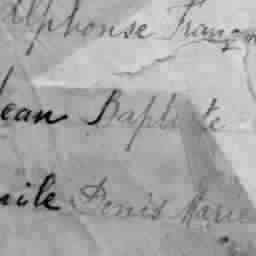 Alphonse Franço
Jean Baptiste
mile Denis Marie